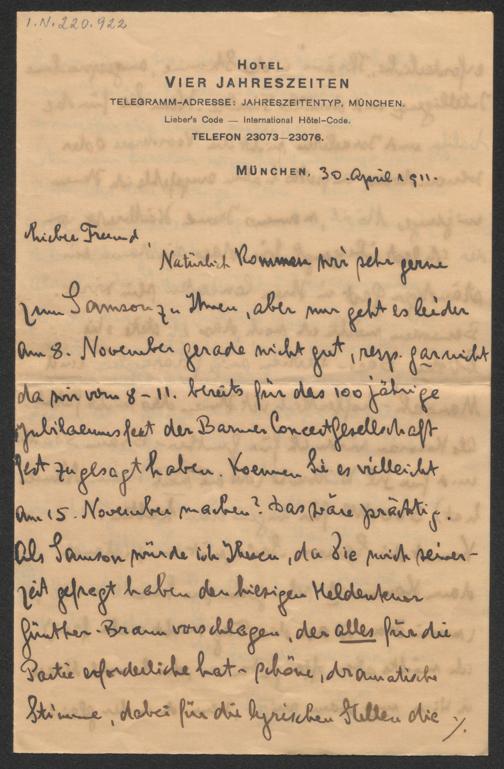 I.N. 220.922
HOTEL
VIER JAHRESZEITEN
TELEGRAMM-ADRESSE: JAHRESZEITENTYP, MÜNCHEN.
Lieber's Code — International Hôtel-Code.
TELEFON 23073—23076.
MÜNCHEN, 30. April 1911.
Lieber Freund,
Natürlich kommen wir sehr gerne
zum Samson zu Ihnen, aber nur geht es leider
am 8. November gerade nicht gut, resp. gar nicht
da wir vom 8-11. bereits für das 100 jährige
Jubilaeumsfest der Barmer Concertgesellschaft
fest zugesagt haben. Koennen Sie es vielleicht
am 15. November machen? Das wäre prächtig.
Als Samson würde ich Ihnen, da Sie mich seiner-
zeit gefragt haben den hiesigen Heldentenor
Günther-Braun vorschlagen, der alles für die
Partie erforderliche hat - schöne, dramatische
Stimme, dabei für die lyrischen Stellen die ./.